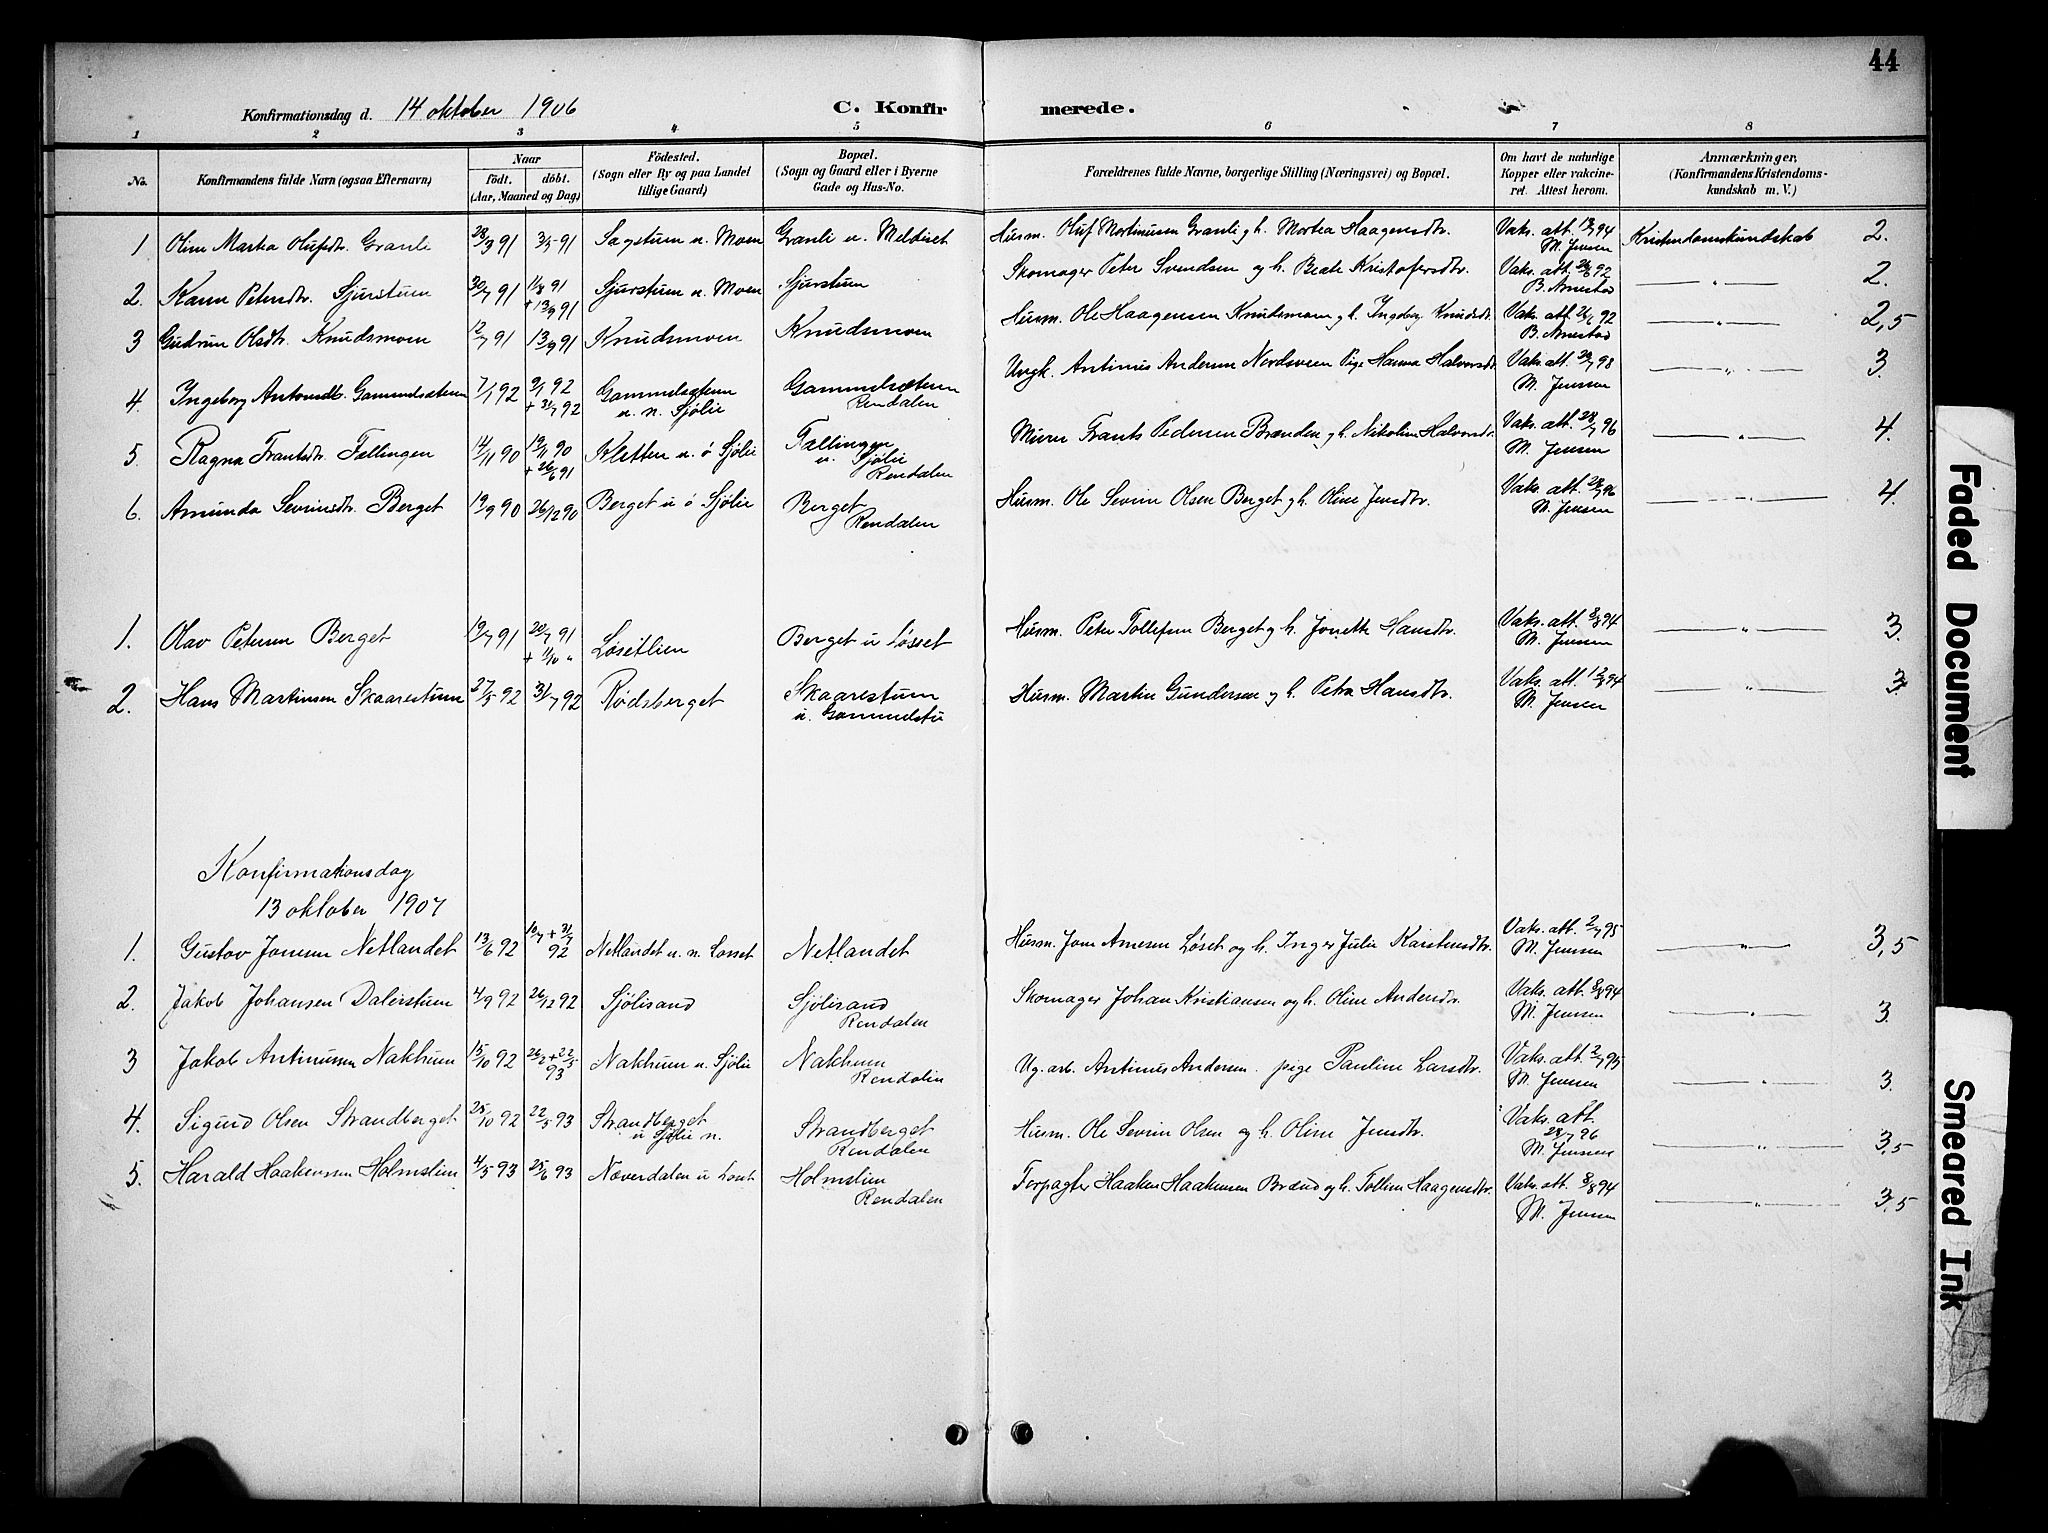 44
Konfirmationsdag d. 14 oktober 1906 C. Konfirmerede.
1 2 3 4 5 6 7 8
No. Konfirmandens fulde Navn (ogsaa Efternavn) Naar født. døbt. (Aar, Maaned og Dag) Födested. (Sogn eller By og paa Landet tillige Gaard) Bopæl. (Sogn og Gaard eller i Byerne Gade og Hus-No. Forældrenes fulde Navne, borgerlige Stilling (Næringsvei) og Bopæl. Om havt de naturlige Kopper eller vakcineret. Attest herom. Anmærkninger, (Konfirmandens Kristendomskundskab m. V.)
1 Oline Martea Olufsdtr. Granli 28/3 91 3/5 91 Sagstuen u. Moen Granli u. Meldiset Husm. Oluf Martinusen Granli og h. Martea Haagensdtr. Vaks. att. 13/8 94 M. Jensen Kristendomskundskab 2.
2. Karen Petersdtr. Sjurstuen 30/7 91 1/8 91 + 13/9 91 Sjurstuen u. Moen Sjurstuen Skomager Peter Svendsen og h. Beate Kristofersdtr. Vaks. att. 26/6 92 B. Arnestad — " — 2.
3 Gudrun Olsdtr. Knudsmoen 12/7 91 13/9 91 Knudsmoen Knudsmoen Husm. Ole Haagensen Knudsmoen og h. Ingeborg Knudsdtr. Vaks. att. 26/6 92 B. Arnestad — " — 2,5
4. Ingeborg Antonsdtr. Gammelsæteren 7/1 92 9/1 92 + 31/7 92 Gammelsæteren u. n. Sjølie Gammelsæteren Rendalen Ungk. Antinius Andersen Nordsveen Pige Hanna Halvorsdtr. Vaks. att. 29/7 98 M. Jensen — " — 3.
5. Ragna Frantsdtr. Fællingen 14/11 90 19/11 90 + 26/6 91 Kletten u. ö Sjølie Fællingen u. Sjølie Rendalen Murer Frants Pedersen Brænden og h. Nikoline Halvorsdtr. Vaks. att. 28/7 96 M. Jensen — " — 4.
6. Amunda Sevrinsdtr. Berget 19/9 90 26/12 90 Berget u ö Sjølie Berget Rendalen Husm. Ole Severin Olsen Berget og h. Oline Jensdtr. Vaks. att. 28/7 96 M. Jensen — " — 4.
1. Olav Petersen Berget 19/7 91 20/7 91 + 11/10 " Løsetlien Berget u Løsset Husm. Peter Tollefsen Berget og h. Jonette Hansdtr. Vaks. att. 8/8 94 M. Jensen — " — 3.
2. Hans Martinsen Skaarestuen 27/5 92 31/7 92 Rødsberget Skaarestuen u. Gammelstu Husm. Martin Gundersen og h. Petra Hansdtr. Vaks. att. 13/8 94 M. Jensen — " — 3.
Konfirmationsdag
13 oktober 1907
1. Gustav Jonsen Netlandet 13/6 92 10/7 + 31/7 92 Netlandet u. n. Losset Netlandet Husm. Jon Arnesen Løset og h. Inger Julie Karstensdtr. Vaks. att. 2/7 95 M. Jensen — " — 3,5
2. Jakob Johansen Dalerstuen 4/9 92 26/12 92 Sjølisand Sjølisand Rendalen Skomager Johan Kristiansen og h. Oline Andersdtr. Vaks. att. 8/8 94 M. Jensen — " — 3.
3 Jakob Antinussen Nakhuen 15/10 92 26/2 + 22/5 93 Nakhuen u. Sjølie Nakhuen Rendalen Ug. arb. Antinus Andersen. pige Pauline Larsdtr. Vaks. att. 2/7 95 M. Jensen — " — 3.
4. Sigurd Olsen Strandberget 25/10 92 22/5 93 Strandberget u Sjølie n. Strandberget Rendalen Husm. Ole Severin Olsen og h. Oline Jensdtr. Vaks. att. 28/7 96 M. Jensen — " — 3,5
5. Harald Haakensen Holmslien 4/5 93 25/6 93 Næverdalen u Losset Holmslien Rendalen Forpagter Haaken Haakensen Brænd og h. Tolline Haagensdtr. Vaks. att. 8/8 94 M. Jensen — " — 3,5
Faded Document
Smeared Ink